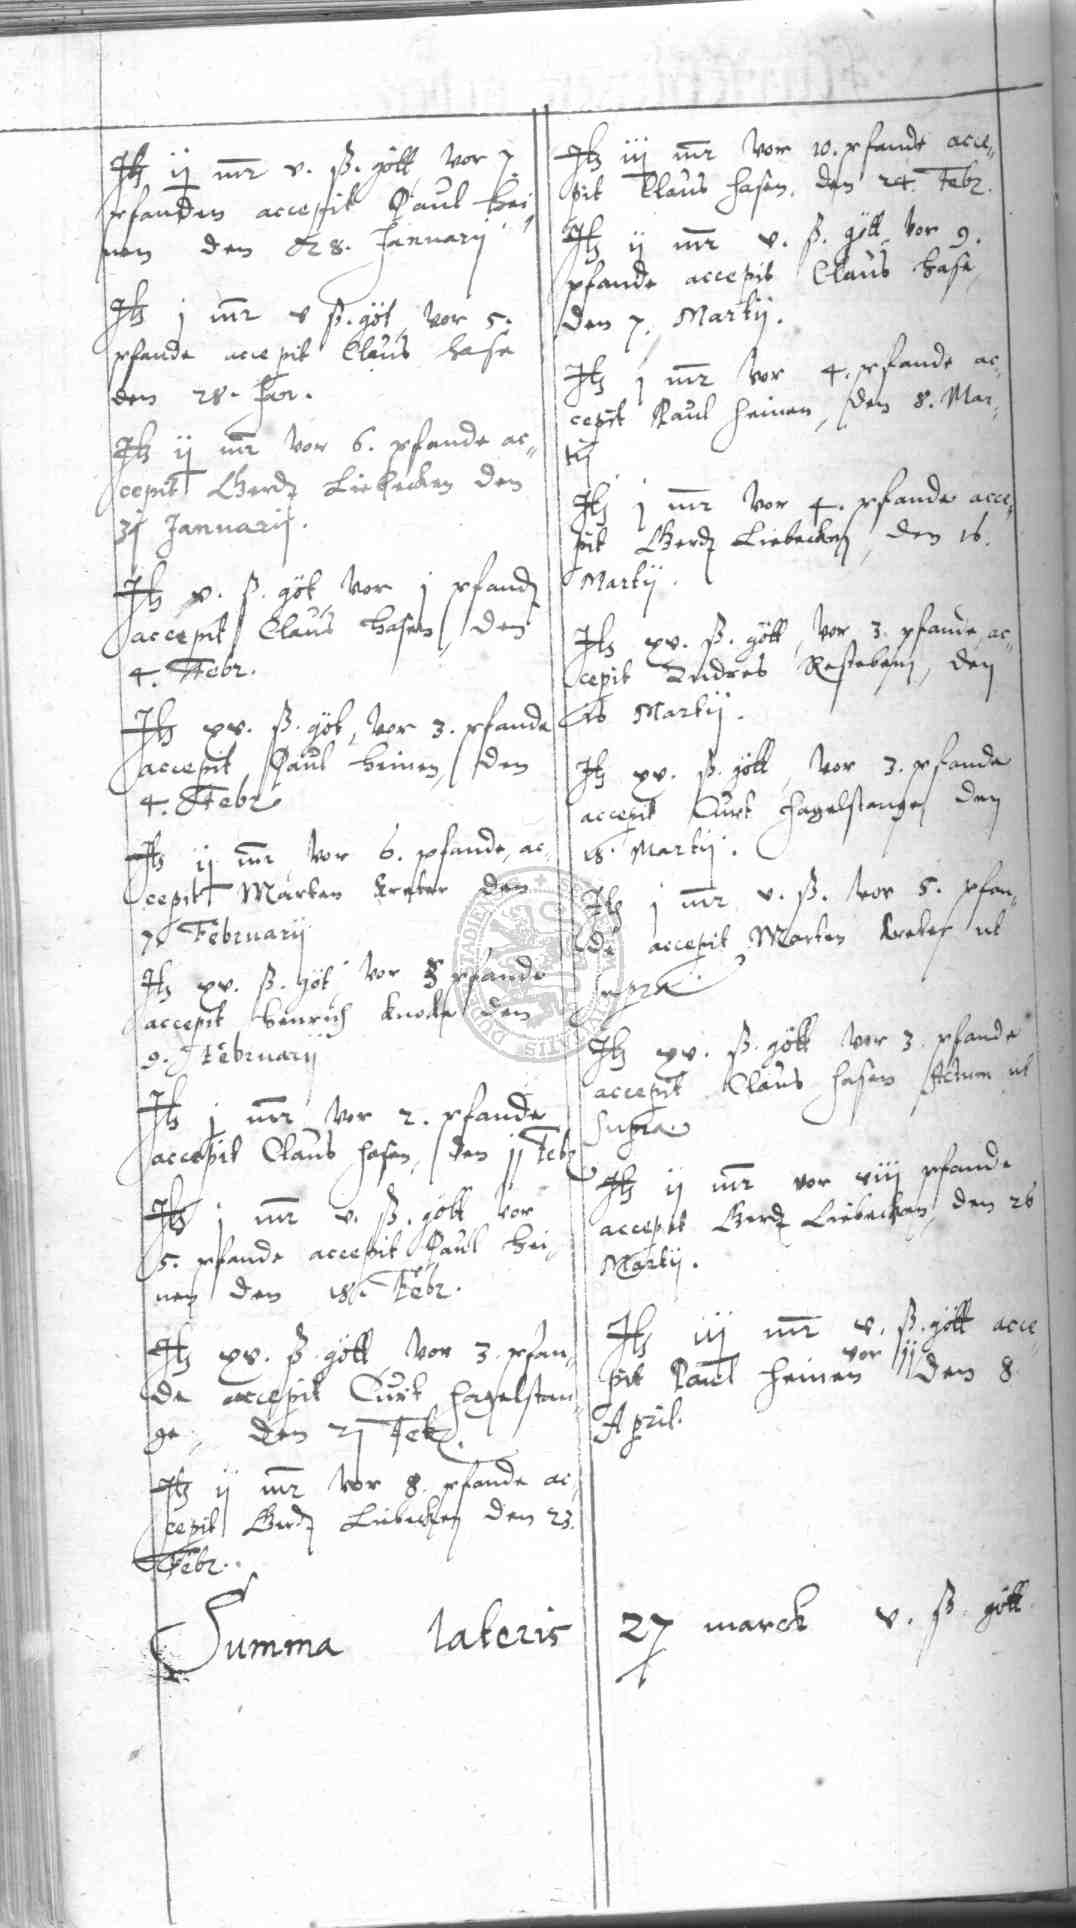 Itz ij mr v. ß. gött, vor 7.
pfanden accepit Paul Hei
nen den 28. Januarij
Itz j mr v ß. göt, vor 5.
pfande accepit Claus Hase
den 28. Jan.
Itz ij mr vor 6. pfande ac„
cepit Gerdt Liebecken den
31 Januarij.
Itz v. ß. göt vor j pfandt
accepit Claus Hasen, den
4. Febr.
Itz xv. ß. göt, vor 3. pfande
accepit Paul Heinen, den
4. Febr
Itz ij mr vor 6. pfande, ac„
cepit Marten Kreter den
7 Februarij
Itz xv. ß. göt vor 3 pfande
accepit Henrich Knoke den
9. Februarij
Itz j mr vor 2. pfande
accepit Claus Hasen, den 11 Febr
Itz j mr v. ß. gött vor
5. pfande accepit Paul Hei„
nen den 18. Febr.
Itz xv. ß. gött, vor 3. pfan„
de accepit Curt Hagelstan„
ge, den 21 Febr.
Itz ij mr vor 8. pfande ac„
cepit Gerdt Liebecken den 23.
Febr.
Itz iij mr vor 10. pfande acce„
pit Claus Hasen, den 24. Febr.
Itz ij mr v. ß. gött, vor 9.
pfande accepit Claus Hase,
den 7. Martij.
Itz j mr vor 4. pfande ac„
cepit Paul Heinen, den 8. Mar„
tij
Itz j mr vor 4. pfande acce„
pit Gerdt Liebecken, den 16.
Martij.
Itz xv. ß. gött, vor 3. pfande, ac„
cepit Andres, den
16 Martij.
Itz xv. ß. gött, vor 3. pfande
accepit Curt Hagelstange den
18. Martij.
Itz j mr v. ß. vor 5. pfan„
de accepit Marten Kreter ut
supra
Itz xv. ß. gött vor 3. pfande
accepit Claus Hasen Actum ut
supra
Itz ij mr vor viij pfande
accepit Gerdt Liebecken, den 26
Martij.
Itz iij mr v. ß. gött acce„
pit Paul Heinen vor 11 den 8.
April.
Summa lateris 27 marck v. ß. gött